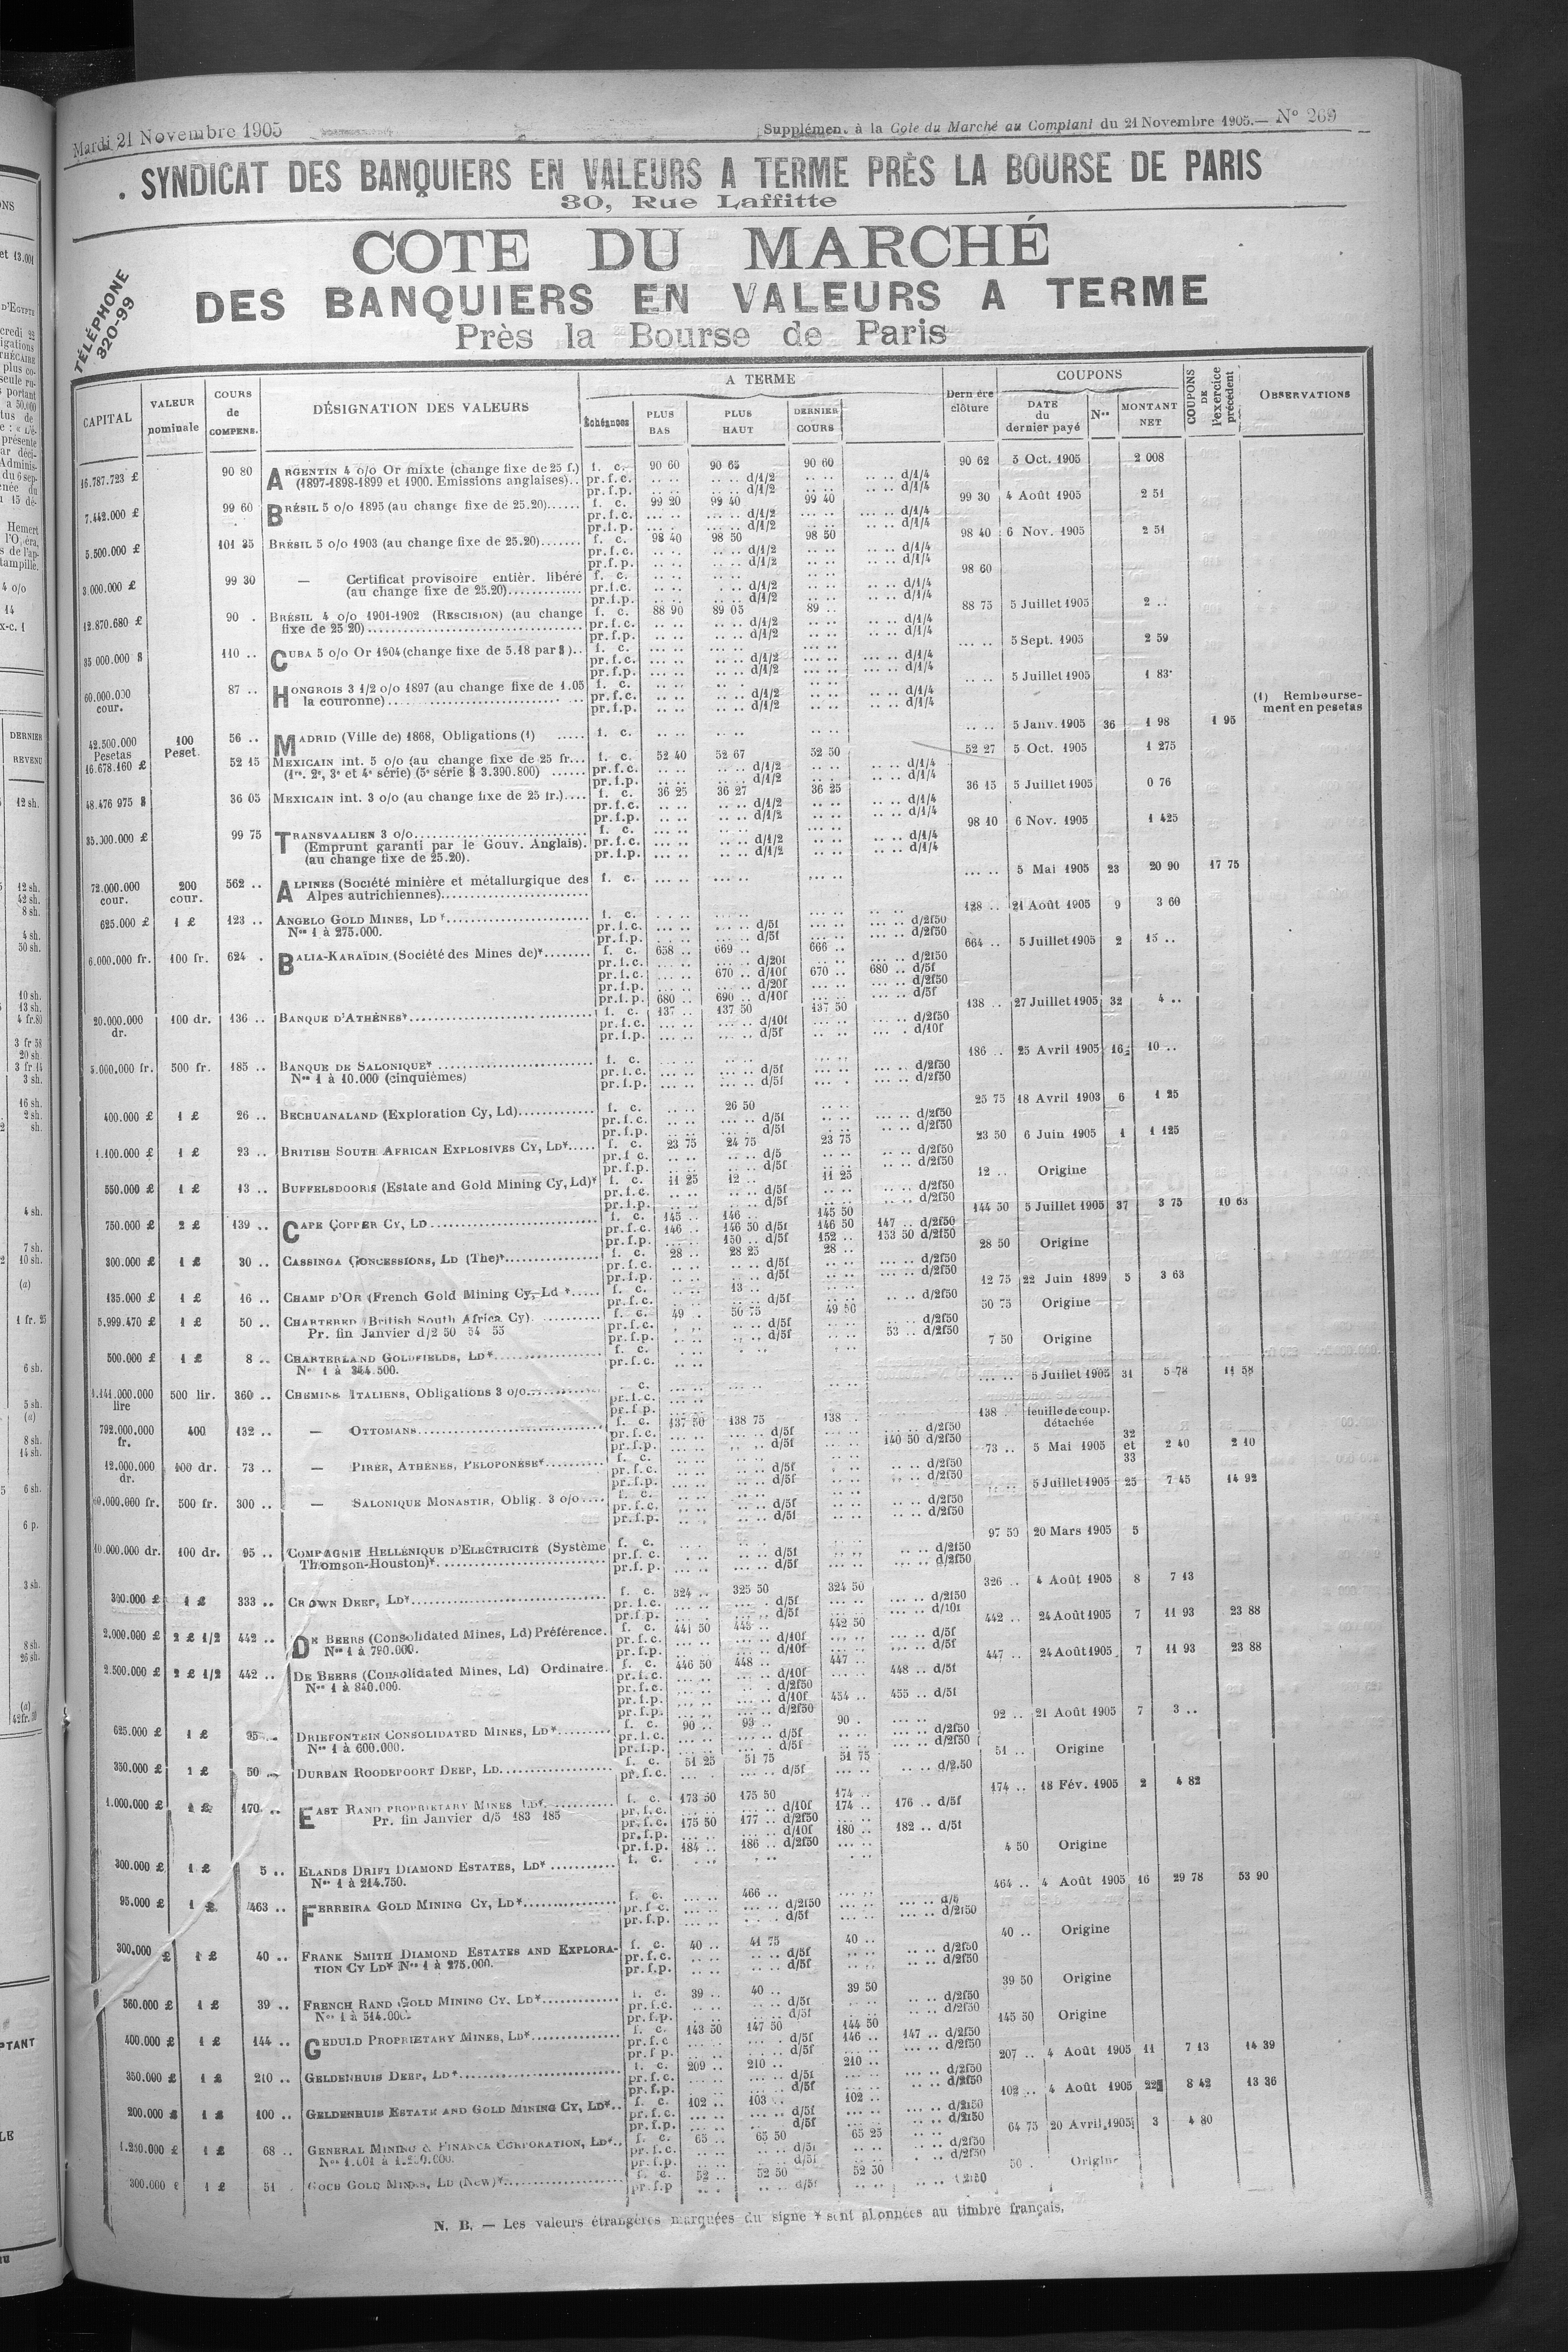 Mardi 21 Novembre 1905
Supplémen. à la Cote du Marché au Comptant du 21 Novembre 1905.— N° 269
SYNDICAT DES BANQUIERS EN VALEURS A TERME PRÈS LA BOURSE DE PARIS
30, Rue Laffitte
TÉLÉPHONE
320-99
COTE DU MARCHÉ
DES BANQUIERS EN VALEURS A TERME
Près la Bourse de Paris
CAPITAL VALEUR nominale COURS de COMPENS. DÉSIGNATION DES VALEURS A TERME Échéances PLUS BAS PLUS HAUT DERNIER COURS Dernière clôture COUPONS DATE du dernier payé Nos MONTANT NET COUPONS DE l'exercice précédent OBSERVATIONS
16.787.723 £ 90 80 ARGENTIN 4 o/o Or mixte (change fixe de 25 f.) f. c. 90 60 90 65 90 60 90 62 5 Oct. 1905 2 008
(1897-1898-1899 et 1900. Emissions anglaises).. pr.f.c. d/1/2 d/1/4
pr.f.p. d/1/2 d/1/4
7.442.000 £ 99 60 BRÉSIL 5 o/o 1895 (au change fixe de 25.20)...... f. c. 99 20 99 40 99 40 99 30 4 Août 1905 2 51
pr.f.c. d/1/2 d/1/4
pr.f.p. d/1/2 d/1/4
5.500.000 £ 101 35 BRÉSIL 5 o/o 1903 (au change fixe de 25.20)....... f. c. 98 40 98 50 98 50 98 40 6 Nov. 1905 2 51
pr.f.c. d/1/2 d/1/4
pr.f.p. d/1/2 d/1/4
3.000.000 £ 99 30 — Certificat provisoire entièr. libéré f. c. 98 60
(au change fixe de 25.20)............. pr.f.c. d/1/2 d/1/4
pr.f.p. d/1/2 d/1/4
12.870.680 £ 90 . BRÉSIL 4 o/o 1901-1902 (RESCISION) (au change f. c. 88 90 89 05 89 .. 88 75 5 Juillet 1905 2 ..
fixe de 25 20)........ pr.f.c. d/1/2 d/1/4
pr.f.p. d/1/2 d/1/4
35.000.000 $ 110 .. CUBA 5 o/o Or 1904 (change fixe de 5.18 par $).. f. c. 5 Sept. 1905 2 59
pr.f.c. d/1/2 d/1/4
pr.f.p. d/1/2 d/1/4
60.000.000 cour. 87 .. HONGROIS 3 1/2 o/o 1897 (au change fixe de 1.05 f. c. 5 Juillet 1905 1 83
la couronne)........ pr.f.c. d/1/2 d/1/4
pr.f.p. d/1/2 d/1/4
(1) Rembourse-
ment en pesetas
42.500.000 Pesetas 100 Peset. 56 .. MADRID (Ville de) 1868, Obligations (1) ..... f. c. 5 Janv. 1905 36 1 98 1 95
16.678.160 £ 52 15 MEXICAIN int. 5 o/o (au change fixe de 25 fr... f. c. 52 40 52 67 52 50 52 27 5 Oct. 1905 1 275
(1re. 2e, 3e et 4e série) (5e série $ 3.390.800) ...... pr.f.c. d/1/2 d/1/4
pr.f.p. d/1/2 d/1/4
48.476 975 $ 36 05 MEXICAIN int. 3 o/o (au change fixe de 25 fr.).... f. c. 36 25 36 27 36 25 36 15 5 Juillet 1905 0 76
pr.f.c. d/1/2 d/1/4
pr.f.p. d/1/2 d/1/4
35.000.000 £ 99 75 TRANSVAALIEN 3 o/o........ f. c. 98 10 6 Nov. 1905 1 425
(Emprunt garanti par le Gouv. Anglais). pr.f.c. d/1/2 d/1/4
(au change fixe de 25.20). pr.f.p. d/1/2 d/1/4
72.000.000 cour. 200 cour. 562 .. ALPINES (Société minière et métallurgique des f. c. 5 Mai 1905 23 20 90 17 75
Alpes autrichiennes)........
625.000 £ 1 £ 123 .. ANGELO GOLD MINES, LD*........ f. c. 128 .. 21 Août 1905 9 3 60
Nos 1 à 275.000. pr.f.c. d/5f d/2f50
pr.f.p. d/5f d/2f50
6.000.000 fr. 100 fr. 624 . BALIA-KARAÏDIN (Société des Mines de)*........ f. c. 658 .. 669 .. 666 .. 664 .. 5 Juillet 1905 2 15 ..
pr.f.c. d/20f d/2f50
pr.f.c. 670 .. d/10f 670 .. 680 .. d/5f
pr.f.p. d/20f d/2f50
pr.f.p. 680 .. 690 .. d/10f d/5f
20.000.000 dr. 100 dr. 136 .. BANQUE D'ATHÈNES*........ f. c. 137 .. 137 50 137 50 138 .. 27 Juillet 1905 32 4 ..
pr.f.c. d/10f d/2f50
pr.f.p. d/5f d/10f
5.000.000 fr. 500 fr. 185 .. BANQUE DE SALONIQUE*........ f. c. 186 .. 25 Avril 1905 16 10 ..
Nos 1 à 10.000 (cinquièmes) pr.f.c. d/5f d/2f50
pr.f.p. d/5f d/2f50
400.000 £ 1 £ 26 .. BECHUANALAND (Exploration Cy, Ld)........ f. c. 26 50 25 75 18 Avril 1903 6 1 25
pr.f.c. d/5f d/2f50
pr.f.p. d/5f d/2f50
1.100.000 £ 1 £ 23 .. BRITISH SOUTH AFRICAN EXPLOSIVES CY, LD*..... f. c. 23 75 24 75 23 75 23 50 6 Juin 1905 1 1 125
pr.f.c. d/5 d/2f50
pr.f.p. d/5f d/2f50
550.000 £ 1 £ 13 .. BUFFELSDOORN (Estate and Gold Mining Cy, Ld)* f. c. 11 25 12 .. 11 25 12 .. Origine
pr.f.c. d/5f d/2f50
pr.f.p. d/5f d/2f50
750.000 £ 2 £ 139 .. CAPE COPPER CY, LD........ f. c. 145 .. 146 .. 145 50 144 50 5 Juillet 1905 37 3 75 10 63
pr.f.c. 146 .. 146 50 d/5f 146 50 147 .. d/2f50
pr.f.p. 150 .. d/5f 152 .. 153 50 d/2f50
300.000 £ 1 £ 30 .. CASSINGA CONCESSIONS, LD (The)*........ f. c. 28 .. 28 25 28 .. 28 50 Origine
pr.f.c. d/5f d/2f50
pr.f.p. d/5f d/2f50
135.000 £ 1 £ 16 .. CHAMP D'OR (French Gold Mining Cy, Ld *..... f. c. 13 .. 12 75 22 Juin 1899 5 3 63
pr.f.c. d/5f d/2f50
5.999.470 £ 1 £ 50 .. CHARTERED (British South Africa Cy)........ f. c. 49 . 50 75 49 50 50 75 Origine
Pr. fin Janvier d/2 50 54 55 pr.f.c. d/5f d/2f50
pr.f.p. d/5f 53 .. d/2f50
500.000 £ 1 £ 8 .. CHARTERLAND GOLDFIELDS, LD*........ f. c. 7 50 Origine
pr.f.c.
1.141.000.000 lire 500 lir. 360 .. CHEMINS ITALIENS, Obligations 3 o/o........ c. 5 Juillet 1905 31 5 78 11 58
pr.f.c.
pr.f.p.
792.000.000 fr. 400 132 .. — OTTOMANS........ f. c. 137 50 138 75 138 . 138 . feuille de coup. détachée
pr.f.c. d/5f d/2f50
pr.f.p. d/5f 140 50 d/2f50
12.000.000 dr. 100 dr. 73 .. — PIRÉE, ATHÈNES, PÉLOPONÈSE*........ f. c. 73 .. 5 Mai 1905 32 et 33 2 40 2 10
pr.f.c. d/5f d/2f50
pr.f.p. d/5f d/2f50
60.000.000 fr. 500 fr. 300 .. — SALONIQUE MONASTIR, Oblig. 3 o/o.... f. c. 5 Juillet 1905 25 7 45 14 92
pr.f.c. d/5f d/2f50
pr.f.p. d/5f d/2f50
10.000.000 dr. 100 dr. 95 .. COMPAGNIE HELLÉNIQUE D'ELECTRICITÉ (Système f. c. 97 50 20 Mars 1905 5
Thomson-Houston)*........ pr.f.c. d/5f d/2f50
pr.f.p. d/5f d/2f50
300.000 £ 1 £ 333 .. CROWN DEEP, LD*........ f. c. 324 .. 325 50 324 50 326 .. 4 Août 1905 8 7 13
pr.f.c. d/5f d/2f50
pr.f.p. d/5f d/10f
2.000.000 £ 2 £ 1/2 442 .. DE BEERS (Consolidated Mines, Ld) Préférence. f. c. 441 50 445 .. 442 50 442 .. 24 Août 1905 7 11 93 23 88
Nos 1 à 790.000. pr.f.c. d/10f d/5f
pr.f.p. d/10f d/5f
2.500.000 £ 2 £ 1/2 442 .. DE BEERS (Consolidated Mines, Ld) Ordinaire. f. c. 446 50 448 .. 447 .. 447 .. 24 Août 1905 7 11 93 23 88
Nos 1 à 840.000. pr.f.c. d/10f 448 .. d/5f
pr.f.c. d/2f50
pr.f.p. d/10f 454 .. 455 .. d/5f
pr.f.p. d/2f50
625.000 £ 1 £ 95 .. DRIEFONTEIN CONSOLIDATED MINES, LD*........ f. c. 90 .. 93 .. 90 . 92 .. 21 Août 1905 7 3 ..
Nos 1 à 600.000. pr.f.c. d/5f d/2f50
pr.f.p. d/5f d/2f50
350.000 £ 1 £ 50 .. DURBAN ROODEPOORT DEEP, LD........ f. c. 51 25 51 75 51 75 51 .. Origine
pr.f.c. d/5f d/2.50
1.000.000 £ 1 £ 170 .. EAST RAND PROPRIETARY MINES LD*........ f. c. 173 50 175 50 174 .. 174 .. 18 Fév. 1905 2 4 82
Pr. fin Janvier d/5 183 185 pr.f.c. d/10f 174 .. 176 .. d/5f
pr.f.c. 175 50 177 .. d/2f50
pr.f.p. d/10f 180 .. 182 .. d/5f
pr.f.p. 184 .. 186 .. d/2f50
300.000 £ 1 £ 5 .. ELANDS DRIFT DIAMOND ESTATES, LD*........ f. c. 4 50 Origine
Nos 1 à 214.750.
95.000 £ 1 £ 463 .. FERREIRA GOLD MINING CY, LD*........ f. c. 466 .. 464 .. 4 Août 1905 16 29 78 53 90
pr.f.c. d/2f50 d/5
pr.f.p. d/5f d/2f50
300.000 £ 1 £ 40 .. FRANK SMITH DIAMOND ESTATES AND EXPLORA- f. c. 40 .. 41 75 40 .. 40 .. Origine
TION CY LD* Nos 1 à 275.000. pr.f.c. d/5f d/2f50
pr.f.p. d/5f d/2f50
560.000 £ 1 £ 39 .. FRENCH RAND GOLD MINING CY, LD*........ f. c. 39 .. 40 .. 39 50 39 50 Origine
Nos 1 à 514.000. pr.f.c. d/5f d/2f50
pr.f.p. d/5f d/2f50
400.000 £ 1 £ 144 .. GEDULD PROPRIETARY MINES, LD*........ f. c. 143 50 147 50 144 50 145 50 Origine
pr.f.c d/5f 146 .. 147 .. d/2f50
pr.f p. d/5f d/2f50
350.000 £ 1 £ 210 .. GELDENHUIS DEEP, LD*........ f. c. 209 .. 210 .. 210 .. 207 .. 4 Août 1905 11 7 13 14 39
pr.f.c. d/5f d/2f50
pr.f.p. d/5f d/2f50
200.000 £ 1 £ 100 .. GELDENHUIS ESTATE AND GOLD MINING CY, LD*.. f. c. 102 .. 103 .. 102 .. 102 .. 4 Août 1905 22 8 42 13 36
pr.f.c. d/5f d/2f50
pr.f.p. d/5f d/2f50
1.250.000 £ 1 £ 68 .. GENERAL MINING & FINANCE CORPORATION, LD*.. f. c. 65 .. 65 50 65 25 64 75 20 Avril 1905 3 4 80
pr.f.c. d/5f d/2f50
pr.f.p. d/5f d/2f50
300.000 £ 1 £ 51 . GOCH GOLD MINES, LD (New)*........ f. c. 52 .. 52 50 52 50 50 . Origine
pr.f.p d/5f
N. B. — Les valeurs étrangères marquées du signe * sont abonnées au timbre français.